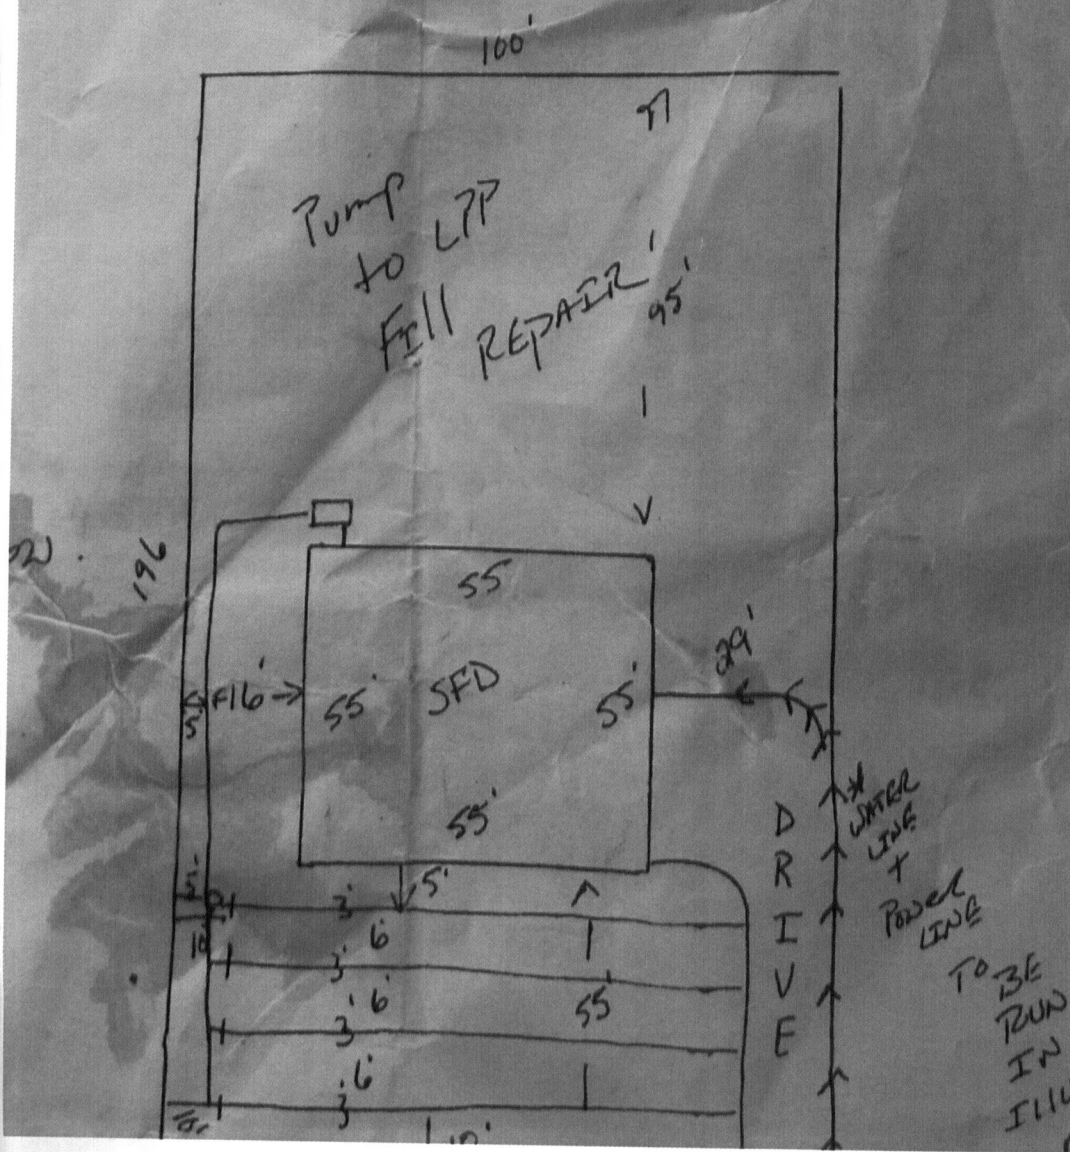 100'
Pump
to LPP
Fill
REPAIR
95'
196
55'
F16'
5'
55'
SFD
55'
29'
55'
* WATER
LINE
+
POWER
LINE
TO BE
RUN
IN
DRIVE
5'
5'
3'
6'
10'
3'
6'
55'
3'
6'
3'
10'